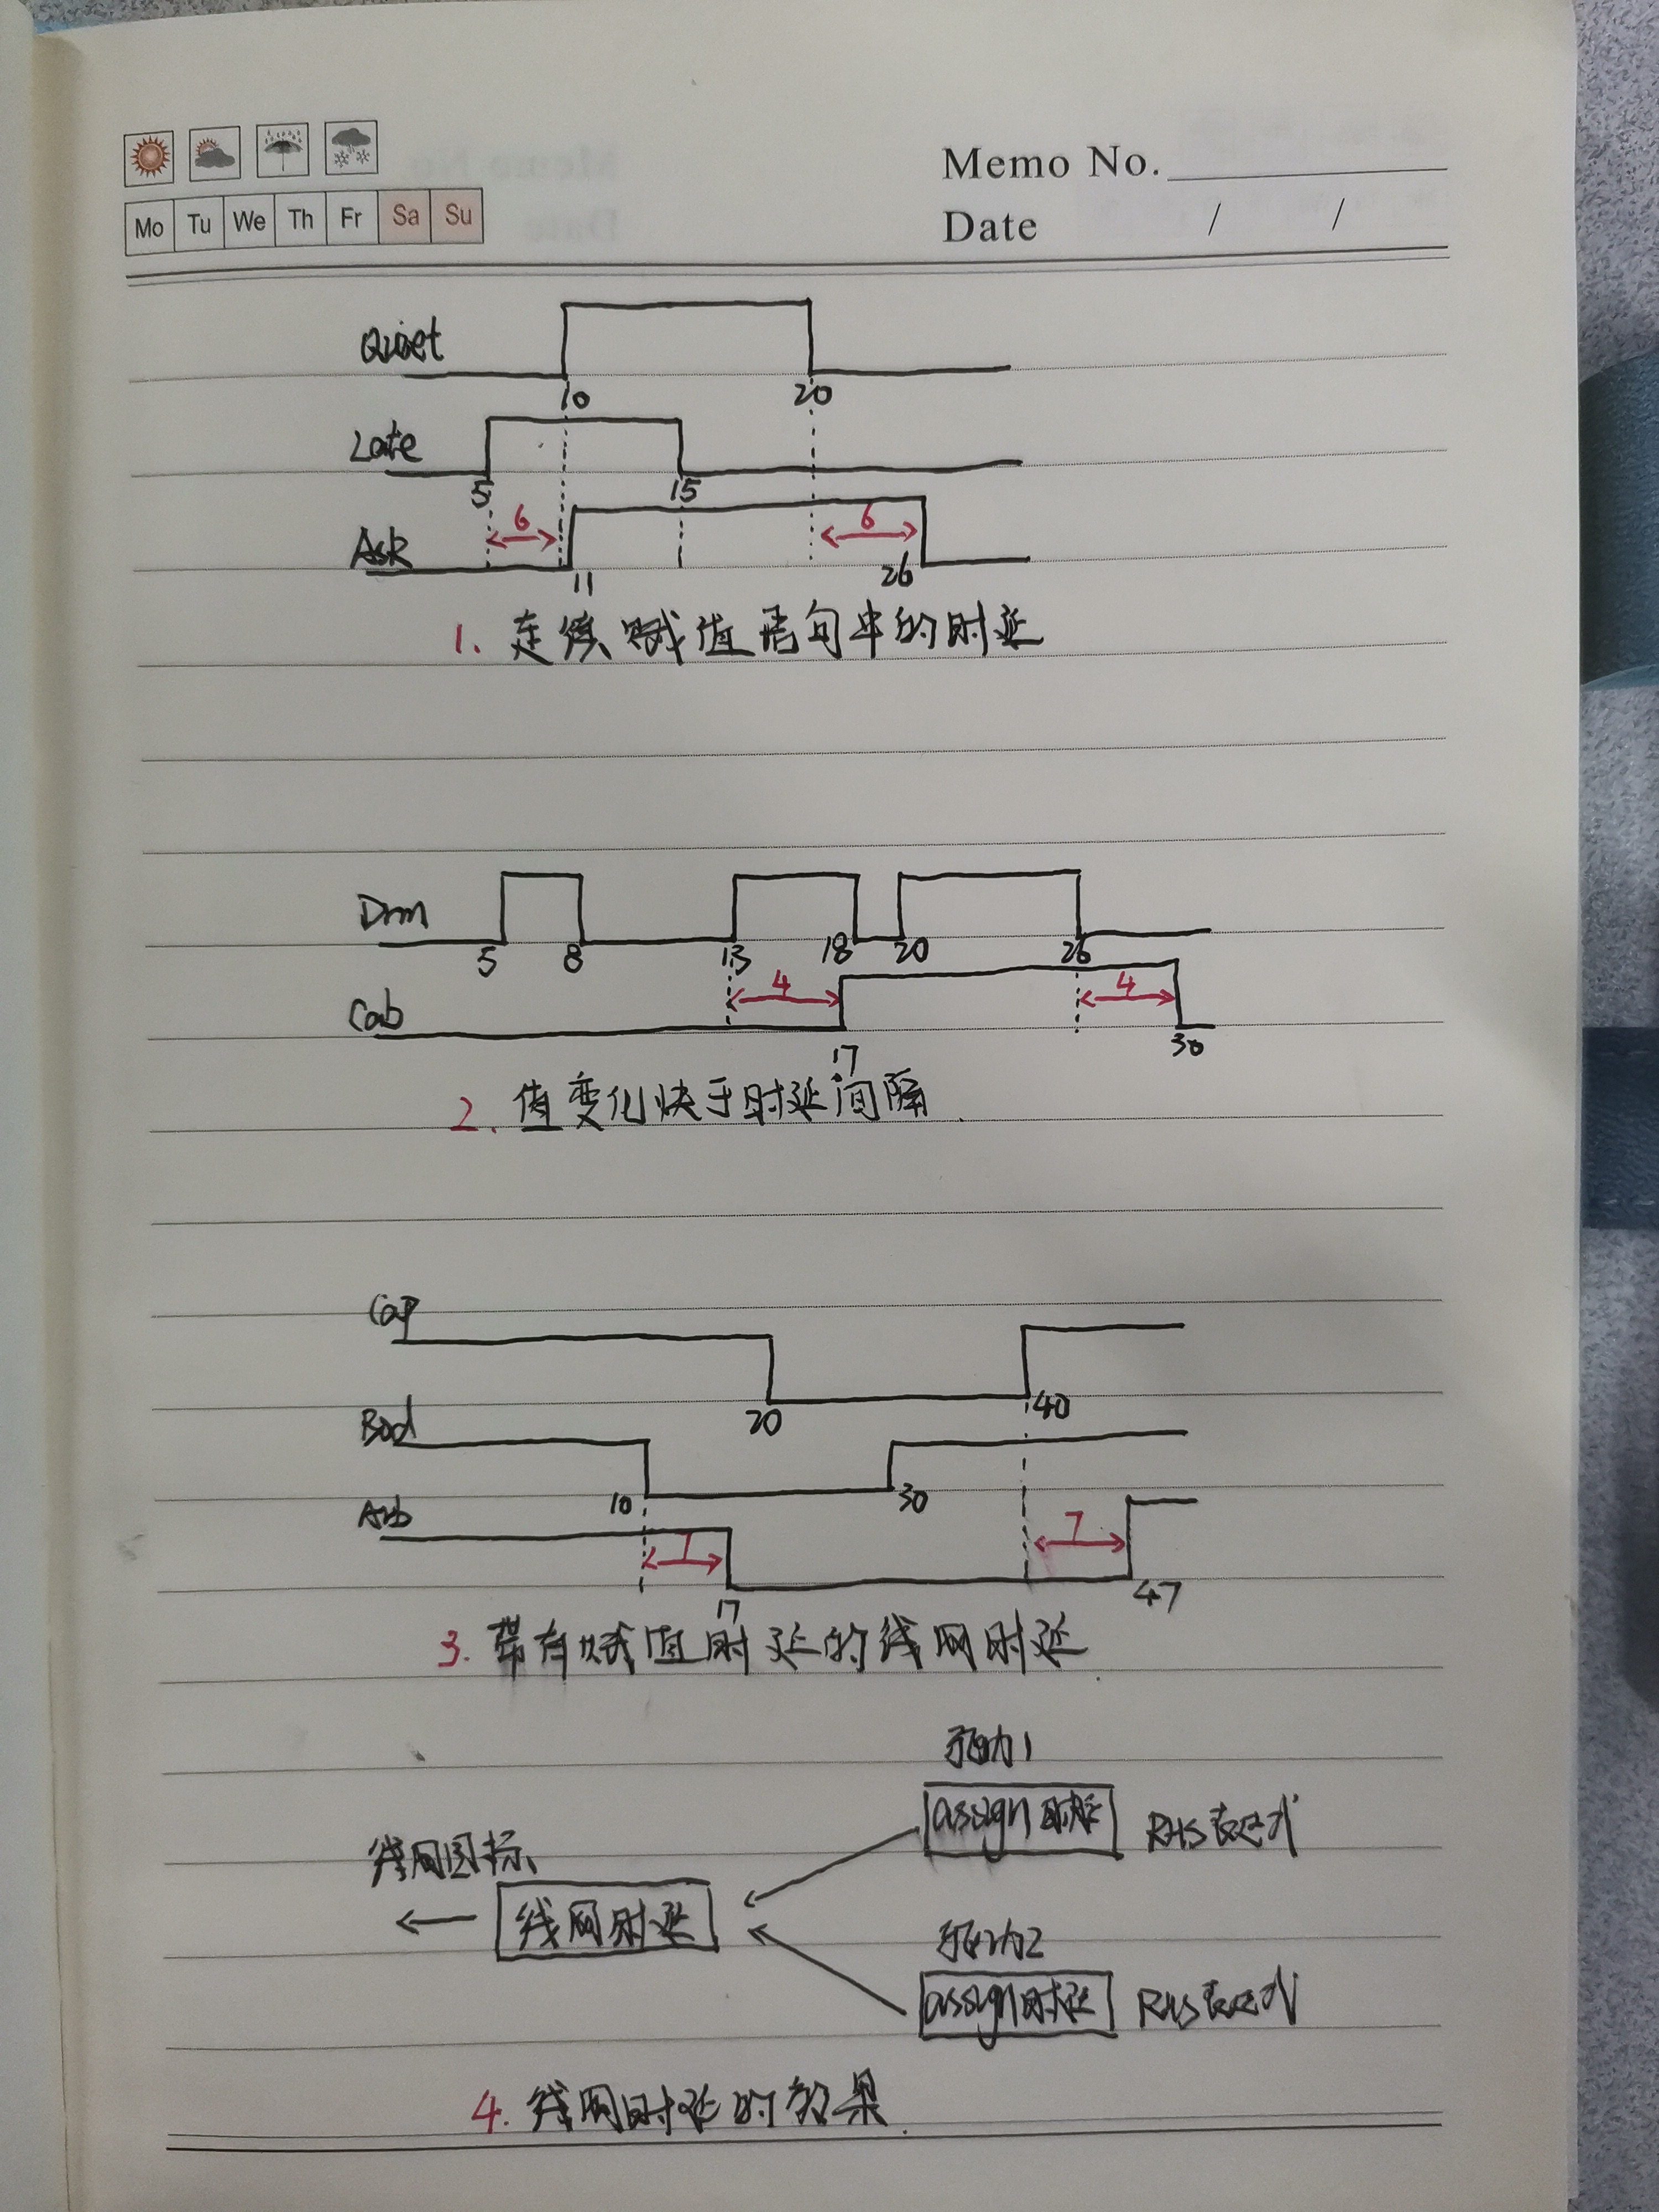 Memo No.
Mo Tu We Th Fr Sa Su
Date / /
Quiet
10 20
Late
5 15
6 6
Ask
11 26
1. 连续赋值语句中的时延
Drm
5 8 13 18 20 26
4 4
Cab
17 30
2. 值变化快于时延间隔.
Cap
20 40
Bod
10 30
Arb
7 7
17 47
3. 带有赋值时延的线网时延.
驱动1
assign时延 RHS表达式
线网目标
线网时延
驱动2
assign时延 RHS表达式
4. 线网时延的效果.